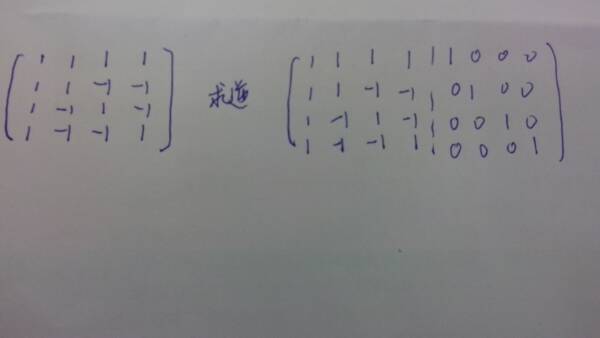 1 1 1 1 1 1 1 1 | 1 0 0 0
1 1 -1 -1 求逆 1 1 -1 -1 | 0 1 0 0
1 -1 1 -1 1 -1 1 -1 | 0 0 1 0
1 -1 -1 1 1 -1 -1 1 | 0 0 0 1